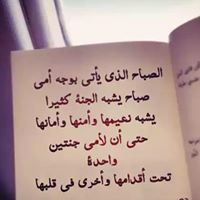 الصباح الذى يأتى بوجه أمى
صباح يشبه الجنة كثيرا
يشبه نعيمها وأمنها وأمانها
حتى أن لأمى جنتين
واحدة
تحت أقدامها وأخرى فى قلبها